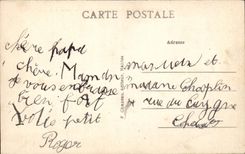 CARTE POSTALE
Adresse
Chère papa
chère Maman
je vous embrasse
bien fort
votre petit
Roger
monsieur et
madame Chaplin
rue du cygne